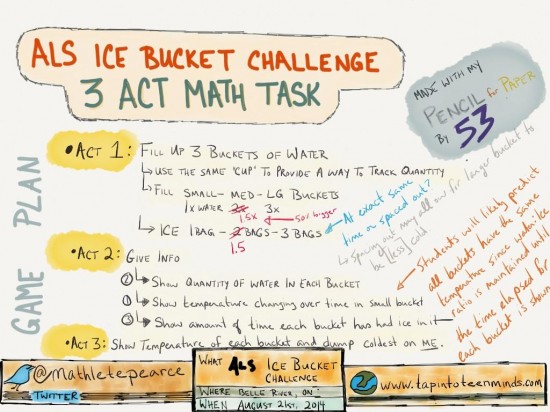 ALS ICE BUCKET CHALLENGE
3 ACT MATH TASK
MADE WITH MY
PENCIL for PAPER
BY 53
GAME PLAN
• ACT 1: FILL UP 3 BUCKETS OF WATER
↳ USE THE SAME "CUP" TO PROVIDE A WAY TO TRACK QUANTITY
↳ FILL SMALL - MED - LG BUCKETS
1x WATER 2x 3x
1.5x ← 50% bigger
↳ ICE 1 BAG - 2 BAGS - 3 BAGS
1.5
At exact same
time or spaced out?
↳ Spacing out may allow for larger bucket to
be [less] cold
Students will likely predict
all buckets have the same
temperature since water:ice
ratio is maintained until
the time elapsed for
each bucket is shown
• ACT 2: GIVE INFO
① ↳ SHOW QUANTITY OF WATER IN EACH BUCKET
② ↳ SHOW temperature changing over time in small bucket
③ ↳ SHOW amount of time each bucket has had ice in it
ACT 3: SHOW Temperature of each bucket and dump coldest on ME.
@mathletepearce
TWITTER
WHAT ALS ICE BUCKET
CHALLENGE
WHERE BELLE RIVER, ON
WHEN AUGUST 21ST, 2014
www.tapintoteenminds.com